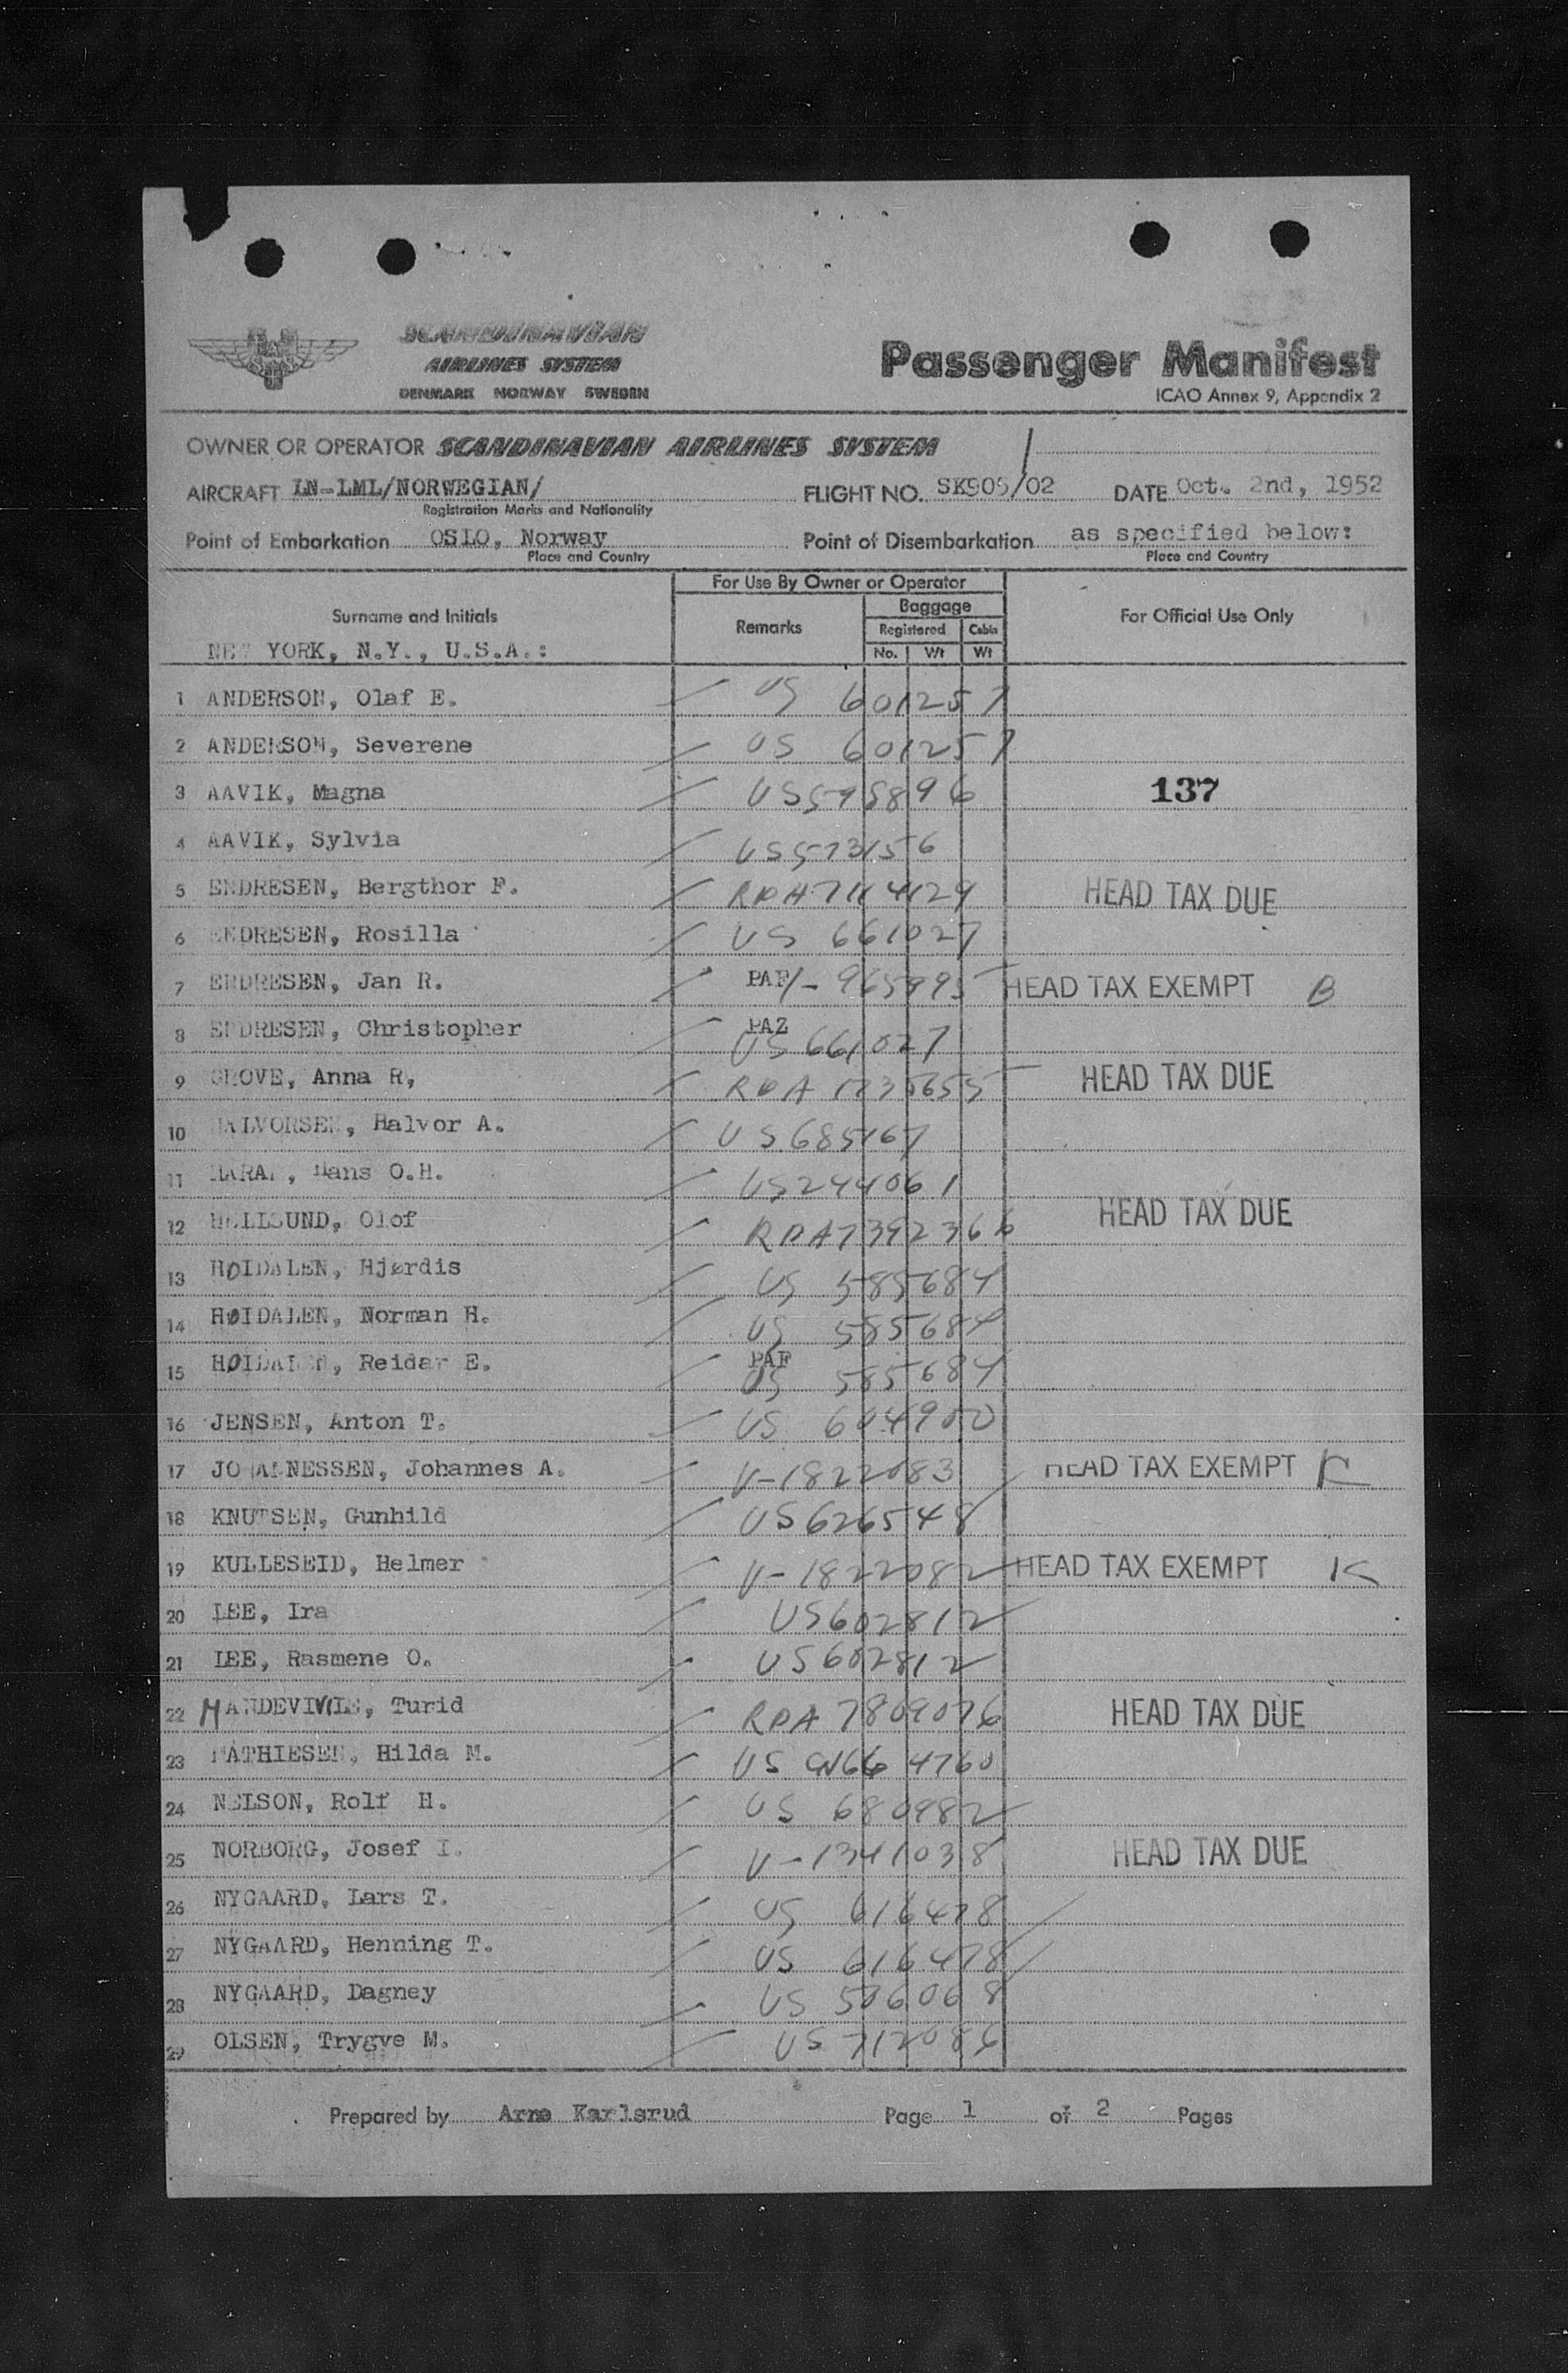 SCANDINAVIAN
AIRLINES SYSTEM
DENMARK NORWAY SWEDEN
Passenger Manifest
ICAO Annex 9, Appendix 2
OWNER OR OPERATOR SCANDINAVIAN AIRLINES SYSTEM
AIRCRAFT LN-LML/NORWEGIAN/ FLIGHT NO. SK905/02 DATE Oct. 2nd, 1952
Registration Marks and Nationality
Point of Embarkation OSLO, Norway Point of Disembarkation as specified below:
Place and Country Place and Country
For Use By Owner or Operator
Surname and Initials Remarks Baggage For Official Use Only
Registered Cabin
NEW YORK, N.Y., U.S.A.: No. Wt Wt
1 ANDERSON, Olaf E. US 601257
2 ANDERSON, Severene US 601257
3 AAVIK, Magna US595896 137
4 AAVIK, Sylvia US573156
5 ENDRESEN, Bergthor F. RPA7114129 HEAD TAX DUE
6 ENDRESEN, Rosilla US 661027
7 ENDRESEN, Jan R. PAF I-965995 HEAD TAX EXEMPT B
8 ENDRESEN, Christopher PAZ US 661027
9 GROVE, Anna R, RPA 1735655 HEAD TAX DUE
10 HALVORSEN, Halvor A. US685167
11 Hans O.H. US244061
12 HELLSUND, Olof RPA7392366 HEAD TAX DUE
13 HØIDALEN, Hjørdis US 585684
14 HØIDALEN, Norman H. US 585684
15 HØIDALEN, Reidar E. PAF US 585684
16 JENSEN, Anton T. US 604900
17 JOHANNESSEN, Johannes A. V-1822083 HEAD TAX EXEMPT K
18 KNUTSEN, Gunhild US626548
19 KULLESEID, Helmer V-1822082 HEAD TAX EXEMPT K
20 LEE, Ira US602812
21 LEE, Rasmene O. US602812
22 MANDEVILLE, Turid RPA 7809076 HEAD TAX DUE
23 MATHIESEN, Hilda M. US 4760
24 NELSON, Rolf H. US 680982
25 NORBORG, Josef I. V-1341038 HEAD TAX DUE
26 NYGAARD, Lars T. US 616478
27 NYGAARD, Henning T. US 616478
28 NYGAARD, Dagney US 506068
29 OLSEN, Trygve M. US 712086
Prepared by Arne Karlsrud Page 1 of 2 Pages